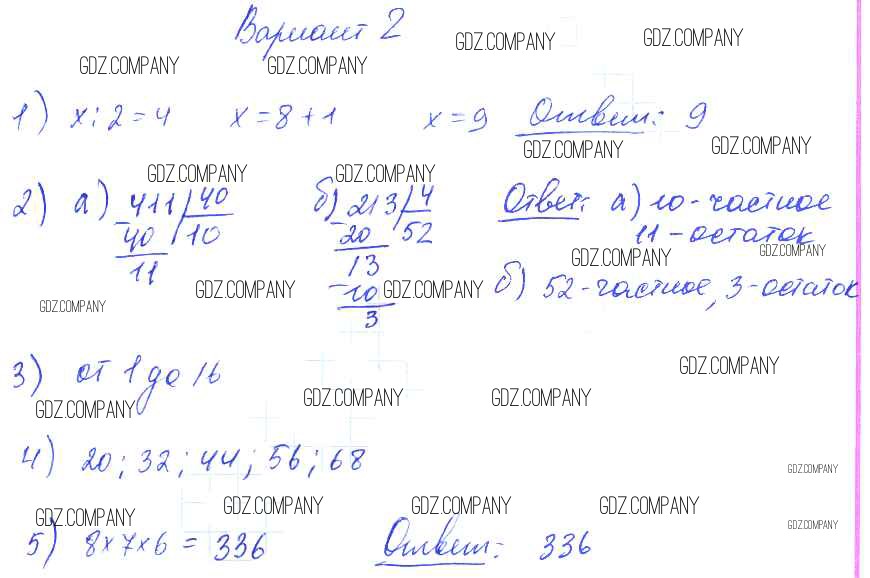 Вариант 2
GDZ.COMPANY GDZ.COMPANY GDZ.COMPANY GDZ.COMPANY
1) x : 2 = 4 x = 8 + 1 x = 9 Ответ: 9
GDZ.COMPANY GDZ.COMPANY
GDZ.COMPANY GDZ.COMPANY
2) а) 411 40 б) 213 4 Ответ: а) 10 - частное
- 40 10 - 20 52 11 - остаток
GDZ.COMPANY GDZ.COMPANY
11 13
GDZ.COMPANY GDZ.COMPANY б) 52 - частное, 3 - остаток
- 10
GDZ.COMPANY
3
3) от 1 до 16
GDZ.COMPANY
GDZ.COMPANY GDZ.COMPANY GDZ.COMPANY
4) 20; 32; 44; 56; 68
GDZ.COMPANY
GDZ.COMPANY GDZ.COMPANY GDZ.COMPANY GDZ.COMPANY
GDZ.COMPANY
5) 8 × 7 × 6 = 336 Ответ: 336